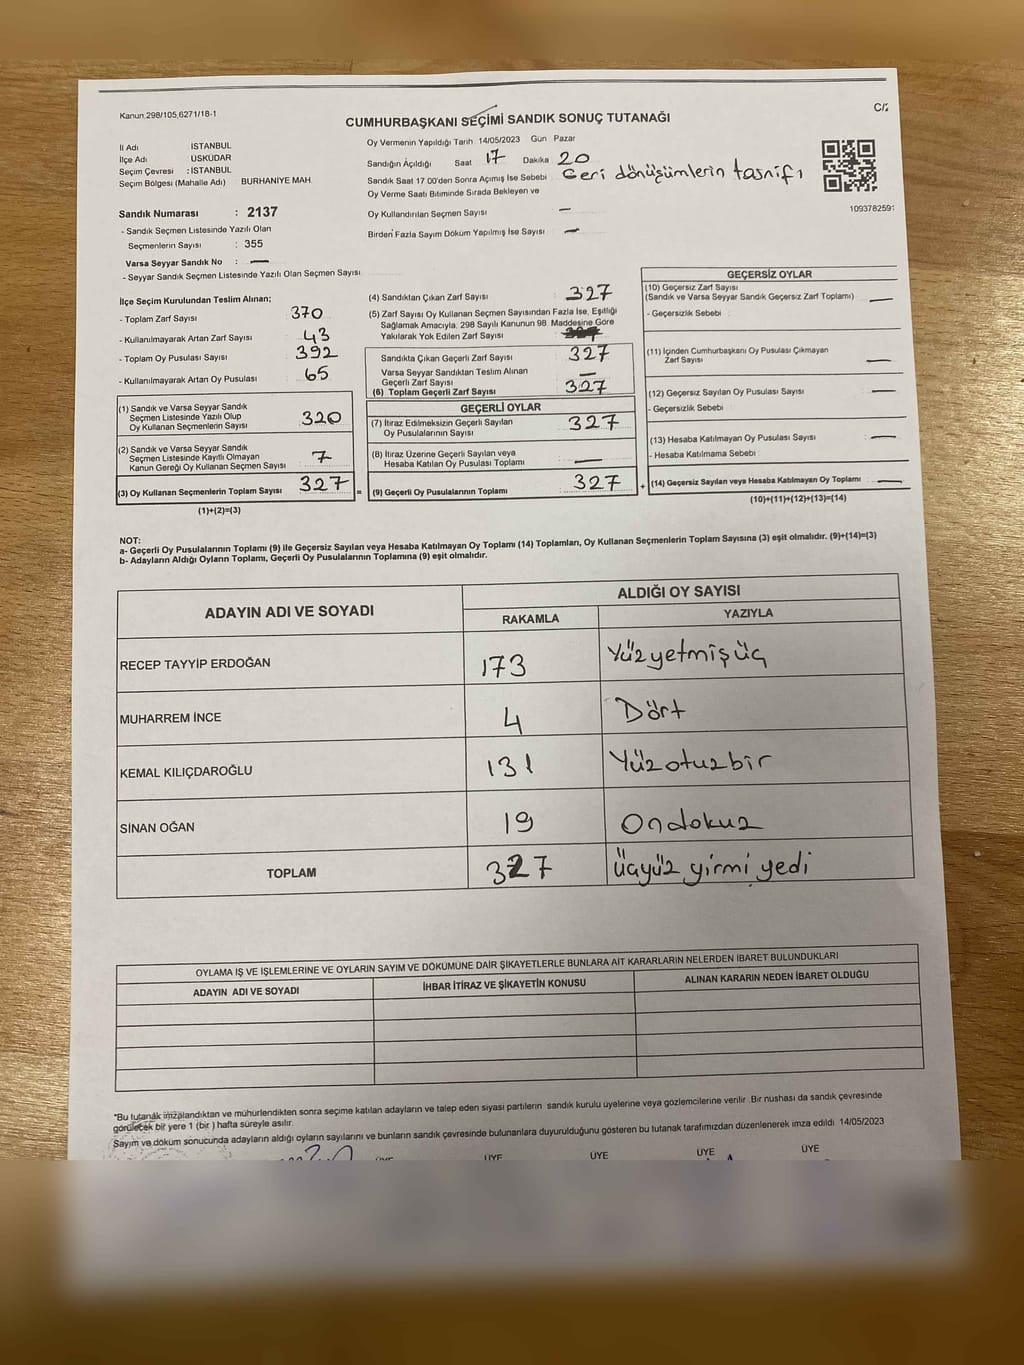 Kanun 298/105,6271/18-1
C/2
CUMHURBAŞKANI SEÇİMİ SANDIK SONUÇ TUTANAĞI
İl Adı İSTANBUL
İlçe Adı ÜSKÜDAR
Seçim Çevresi : İSTANBUL
Seçim Bölgesi (Mahalle Adı) BURHANİYE MAH.
Sandık Numarası : 2137
- Sandık Seçmen Listesinde Yazılı Olan
Seçmenlerin Sayısı : 355
Varsa Seyyar Sandık No : —
- Seyyar Sandık Seçmen Listesinde Yazılı Olan Seçmen Sayısı
Oy Vermenin Yapıldığı Tarih 14/05/2023 Gün Pazar
Sandığın Açıldığı Saat 17 Dakika 20
Sandık Saat 17 00'den Sonra Açımış İse Sebebi Geri dönüşümlerin tasnifi
Oy Verme Saati Bitiminde Sırada Bekleyen ve
Oy Kullandırılan Seçmen Sayısı —
Birden Fazla Sayım Döküm Yapılmış İse Sayısı —
109378259
İlçe Seçim Kurulundan Teslim Alınan;
- Toplam Zarf Sayısı 370
- Kullanılmayarak Artan Zarf Sayısı 43
- Toplam Oy Pusulası Sayısı 392
- Kullanılmayarak Artan Oy Pusulası 65
(1) Sandık ve Varsa Seyyar Sandık
Seçmen Listesinde Yazılı Olup
Oy Kullanan Seçmenlerin Sayısı 320
(2) Sandık ve Varsa Seyyar Sandık
Seçmen Listesinde Kayıtlı Olmayan
Kanun Gereği Oy Kullanan Seçmen Sayısı 7
(3) Oy Kullanan Seçmenlerin Toplam Sayısı 327 =
(1)+(2)=(3)
(4) Sandıktan Çıkan Zarf Sayısı : 327
(5) Zarf Sayısı Oy Kullanan Seçmen Sayısından Fazla İse, Eşitliği
Sağlamak Amacıyla, 298 Sayılı Kanunun 98. Maddesine Göre
Yakılarak Yok Edilen Zarf Sayısı
Sandıkta Çıkan Geçerli Zarf Sayısı 327
Varsa Seyyar Sandıktan Teslim Alınan
Geçerli Zarf Sayısı —
(6) Toplam Geçerli Zarf Sayısı 327
GEÇERLİ OYLAR
(7) İtiraz Edilmeksizin Geçerli Sayılan
Oy Pusulalarının Sayısı 327
(8) İtiraz Üzerine Geçerli Sayılan veya
Hesaba Katılan Oy Pusulası Toplamı —
(9) Geçerli Oy Pusulalarının Toplamı 327 +
GEÇERSİZ OYLAR
(10) Geçersiz Zarf Sayısı
(Sandık ve Varsa Seyyar Sandık Geçersiz Zarf Toplamı) —
- Geçersizlik Sebebi
(11) İçinden Cumhurbaşkanı Oy Pusulası Çıkmayan
Zarf Sayısı —
(12) Geçersiz Sayılan Oy Pusulası Sayısı —
- Geçersizlik Sebebi
(13) Hesaba Katılmayan Oy Pusulası Sayısı —
- Hesaba Katılmama Sebebi
(14) Geçersiz Sayılan veya Hesaba Katılmayan Oy Toplamı —
(10)+(11)+(12)+(13)=(14)
NOT:
a- Geçerli Oy Pusulalarının Toplamı (9) ile Geçersiz Sayılan veya Hesaba Katılmayan Oy Toplamı (14) Toplamları, Oy Kullanan Seçmenlerin Toplam Sayısına (3) eşit olmalıdır. (9)+(14)=(3)
b- Adayların Aldığı Oyların Toplamı, Geçerli Oy Pusulalarının Toplamına (9) eşit olmalıdır.
ADAYIN ADI VE SOYADI
ALDIĞI OY SAYISI
RAKAMLA YAZIYLA
RECEP TAYYİP ERDOĞAN 173 Yüzyetmişüç
MUHARREM İNCE 4 Dört
KEMAL KILIÇDAROĞLU 131 Yüzotuzbir
SİNAN OĞAN 19 Ondokuz
TOPLAM 327 Üçyüz yirmi yedi
OYLAMA İŞ VE İŞLEMLERİNE VE OYLARIN SAYIM VE DÖKÜMÜNE DAİR ŞİKAYETLERLE BUNLARA AİT KARARLARIN NELERDEN İBARET BULUNDUKLARI
ADAYIN ADI VE SOYADI İHBAR İTİRAZ VE ŞİKAYETİN KONUSU ALINAN KARARIN NEDEN İBARET OLDUĞU
*Bu tutanak imzalandıktan ve mühürlendikten sonra seçime katılan adayların ve talep eden siyasi partilerin sandık kurulu üyelerine veya gözlemcilerine verilir. Bir nushası da sandık çevresinde
görülecek bir yere 1 (bir ) hafta süreyle asılır.
Sayım ve döküm sonucunda adayların aldığı oyların sayılarını ve bunların sandık çevresinde bulunanlara duyurulduğunu gösteren bu tutanak tarafımızdan düzenlenerek imza edildi 14/05/2023
ÜYE ÜYE ÜYE ÜYE